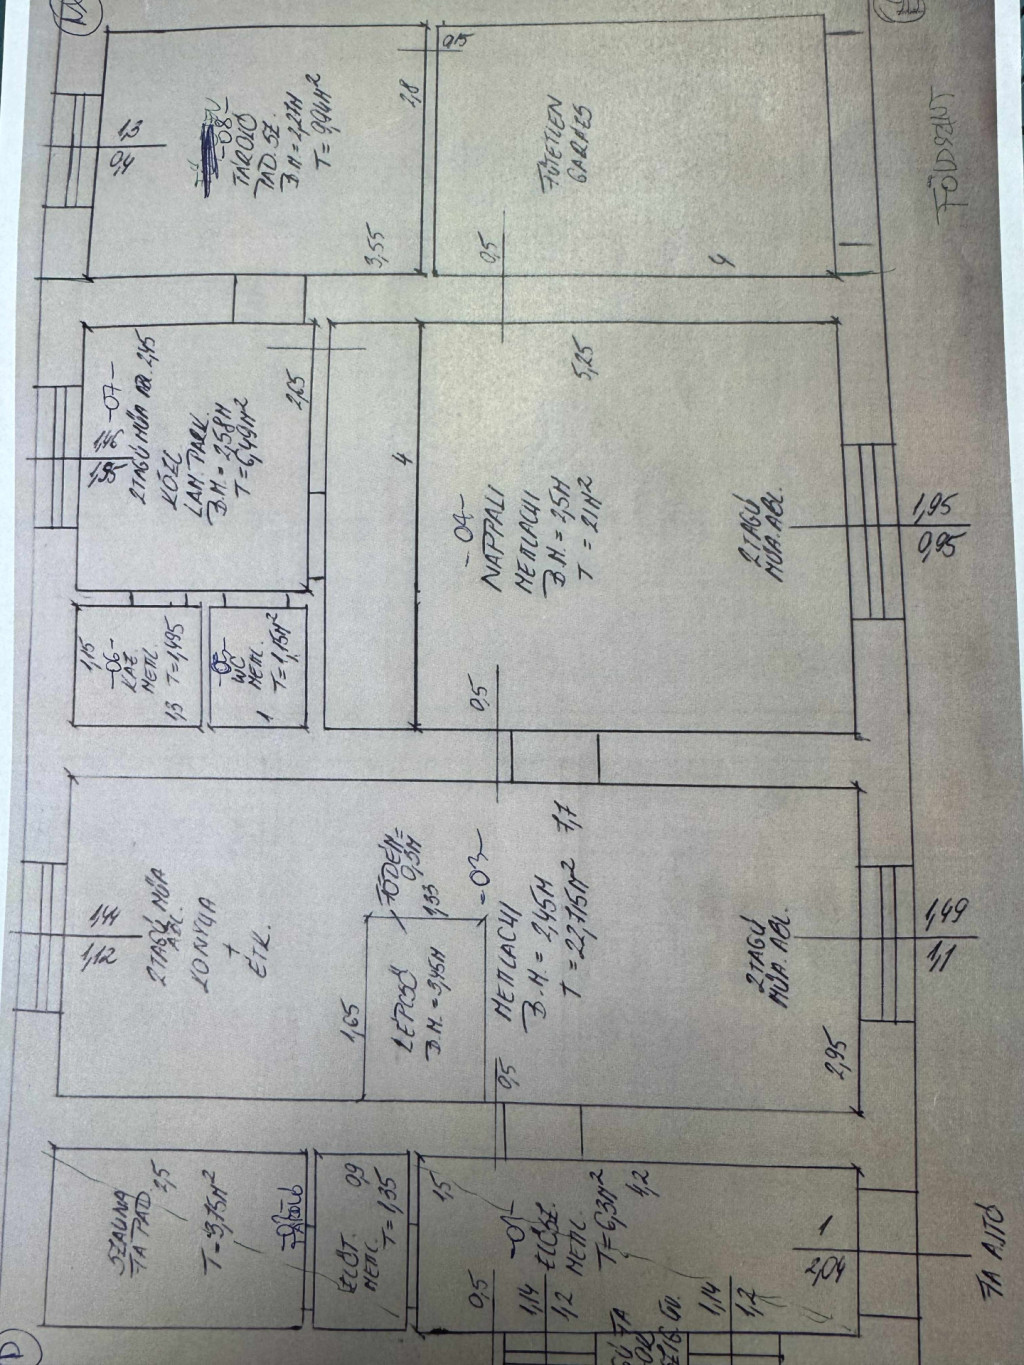 FÖLDSZINT
1,3
0,4
-08-
TÁROLÓ
PAD. SZ.
B.M = 2,27M
T = 9,94M²
2,8
3,55
0,15
FŰTETLEN
GARÁZS
0,5
4
-07-
2TAGÚ MŰA ABL. 2,45
KÖZL
LAM. PARK.
B.M = 2,58M
T = 6,49M²
2,65
1,15
-06-
KAZ.
METL.
T = 1,495
1,3
WC
METL.
T = 1,15M²
1
4
5,25
-04-
NAPPALI
METLACHI
B.M. = 2,5M
T = 21M²
2TAGÚ
MŰA. ABL.
1,95
0,95
0,5
1,44
1,12
2TAGÚ MŰA
ABL.
KONYHA
+
ÉTK.
FÖDÉM=
0,3M
1,33
1,65
LÉPCSŐ
B.M. = 3,45M
-03-
METLACHI
B.M. = 2,45M
T = 22,715M² 7,7
2TAGÚ
MŰA. ABL.
1,49
1,1
0,5
2,95
SZAUNA
FA PAD.
2,5
T = 3,75M²
ELŐT.
METL.
0,9
T = 1,35
1,5
-01-
ELŐSZ.
METL.
T = 6,3M²
4,2
0,5
1,14
1,2
1,14
1,2
1
2,04
FA AJTÓ
D